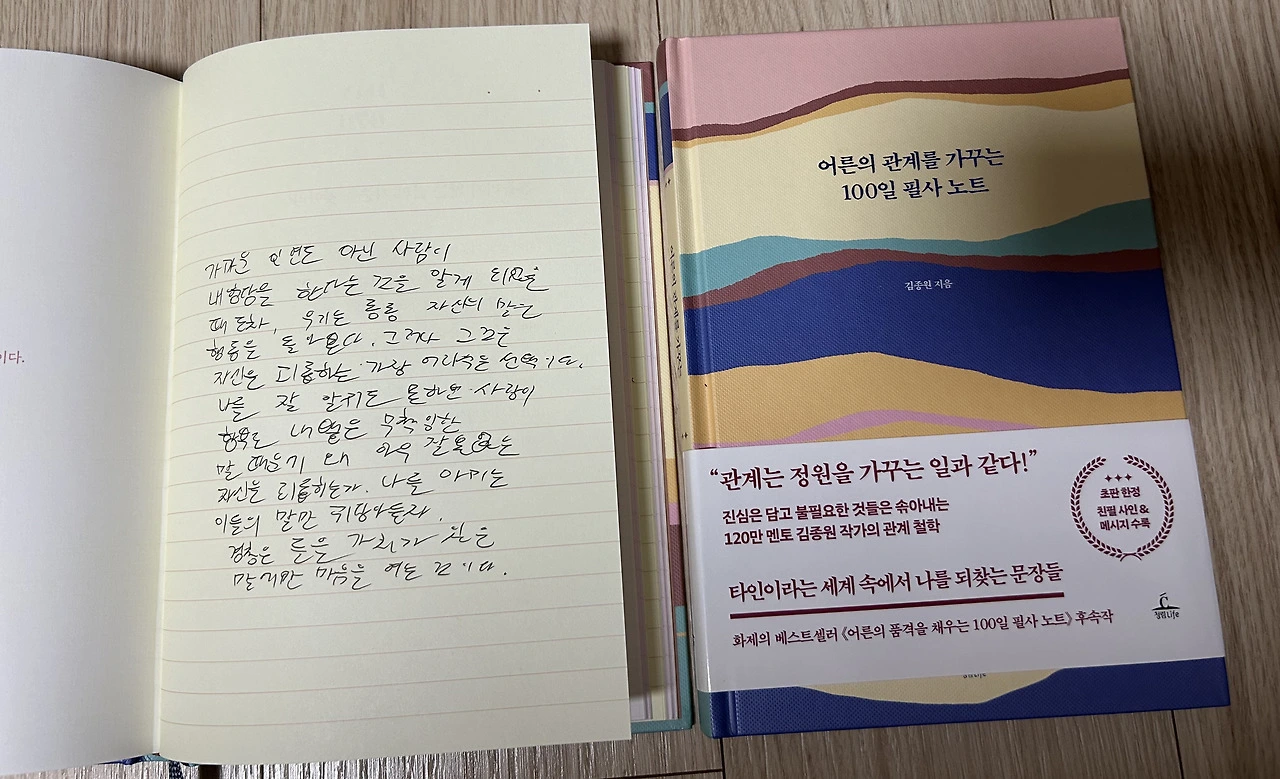 이다.
가까운 인연도 아닌 사람이
내 험담을 한다는 것을 알게 되었을
때조차, 우리는 자신의 말과
행동을 돌아본다. 그러나 그것은
자신을 괴롭히는 가장 어리석은 선택이다.
나를 잘 알지도 못하는 사람이
함부로 내뱉은 무책임한
말 때문에 왜 아무 잘못 없는
자신을 괴롭히는가. 나를 아끼는
이들의 말만 귀담아들어라.
경청은 들을 가치가 있는
말에만 마음을 여는 것이다.
어른의 관계를 가꾸는
100일 필사 노트
김종원 지음
어른의 관계를 가꾸는
“관계는 정원을 가꾸는 일과 같다!”
진심은 담고 불필요한 것들은 솎아내는
120만 멘토 김종원 작가의 관계 철학
초판 한정
친필 사인 &
메시지 수록
타인이라는 세계 속에서 나를 되찾는 문장들
화제의 베스트셀러 《어른의 품격을 채우는 100일 필사 노트》 후속작
청림Life